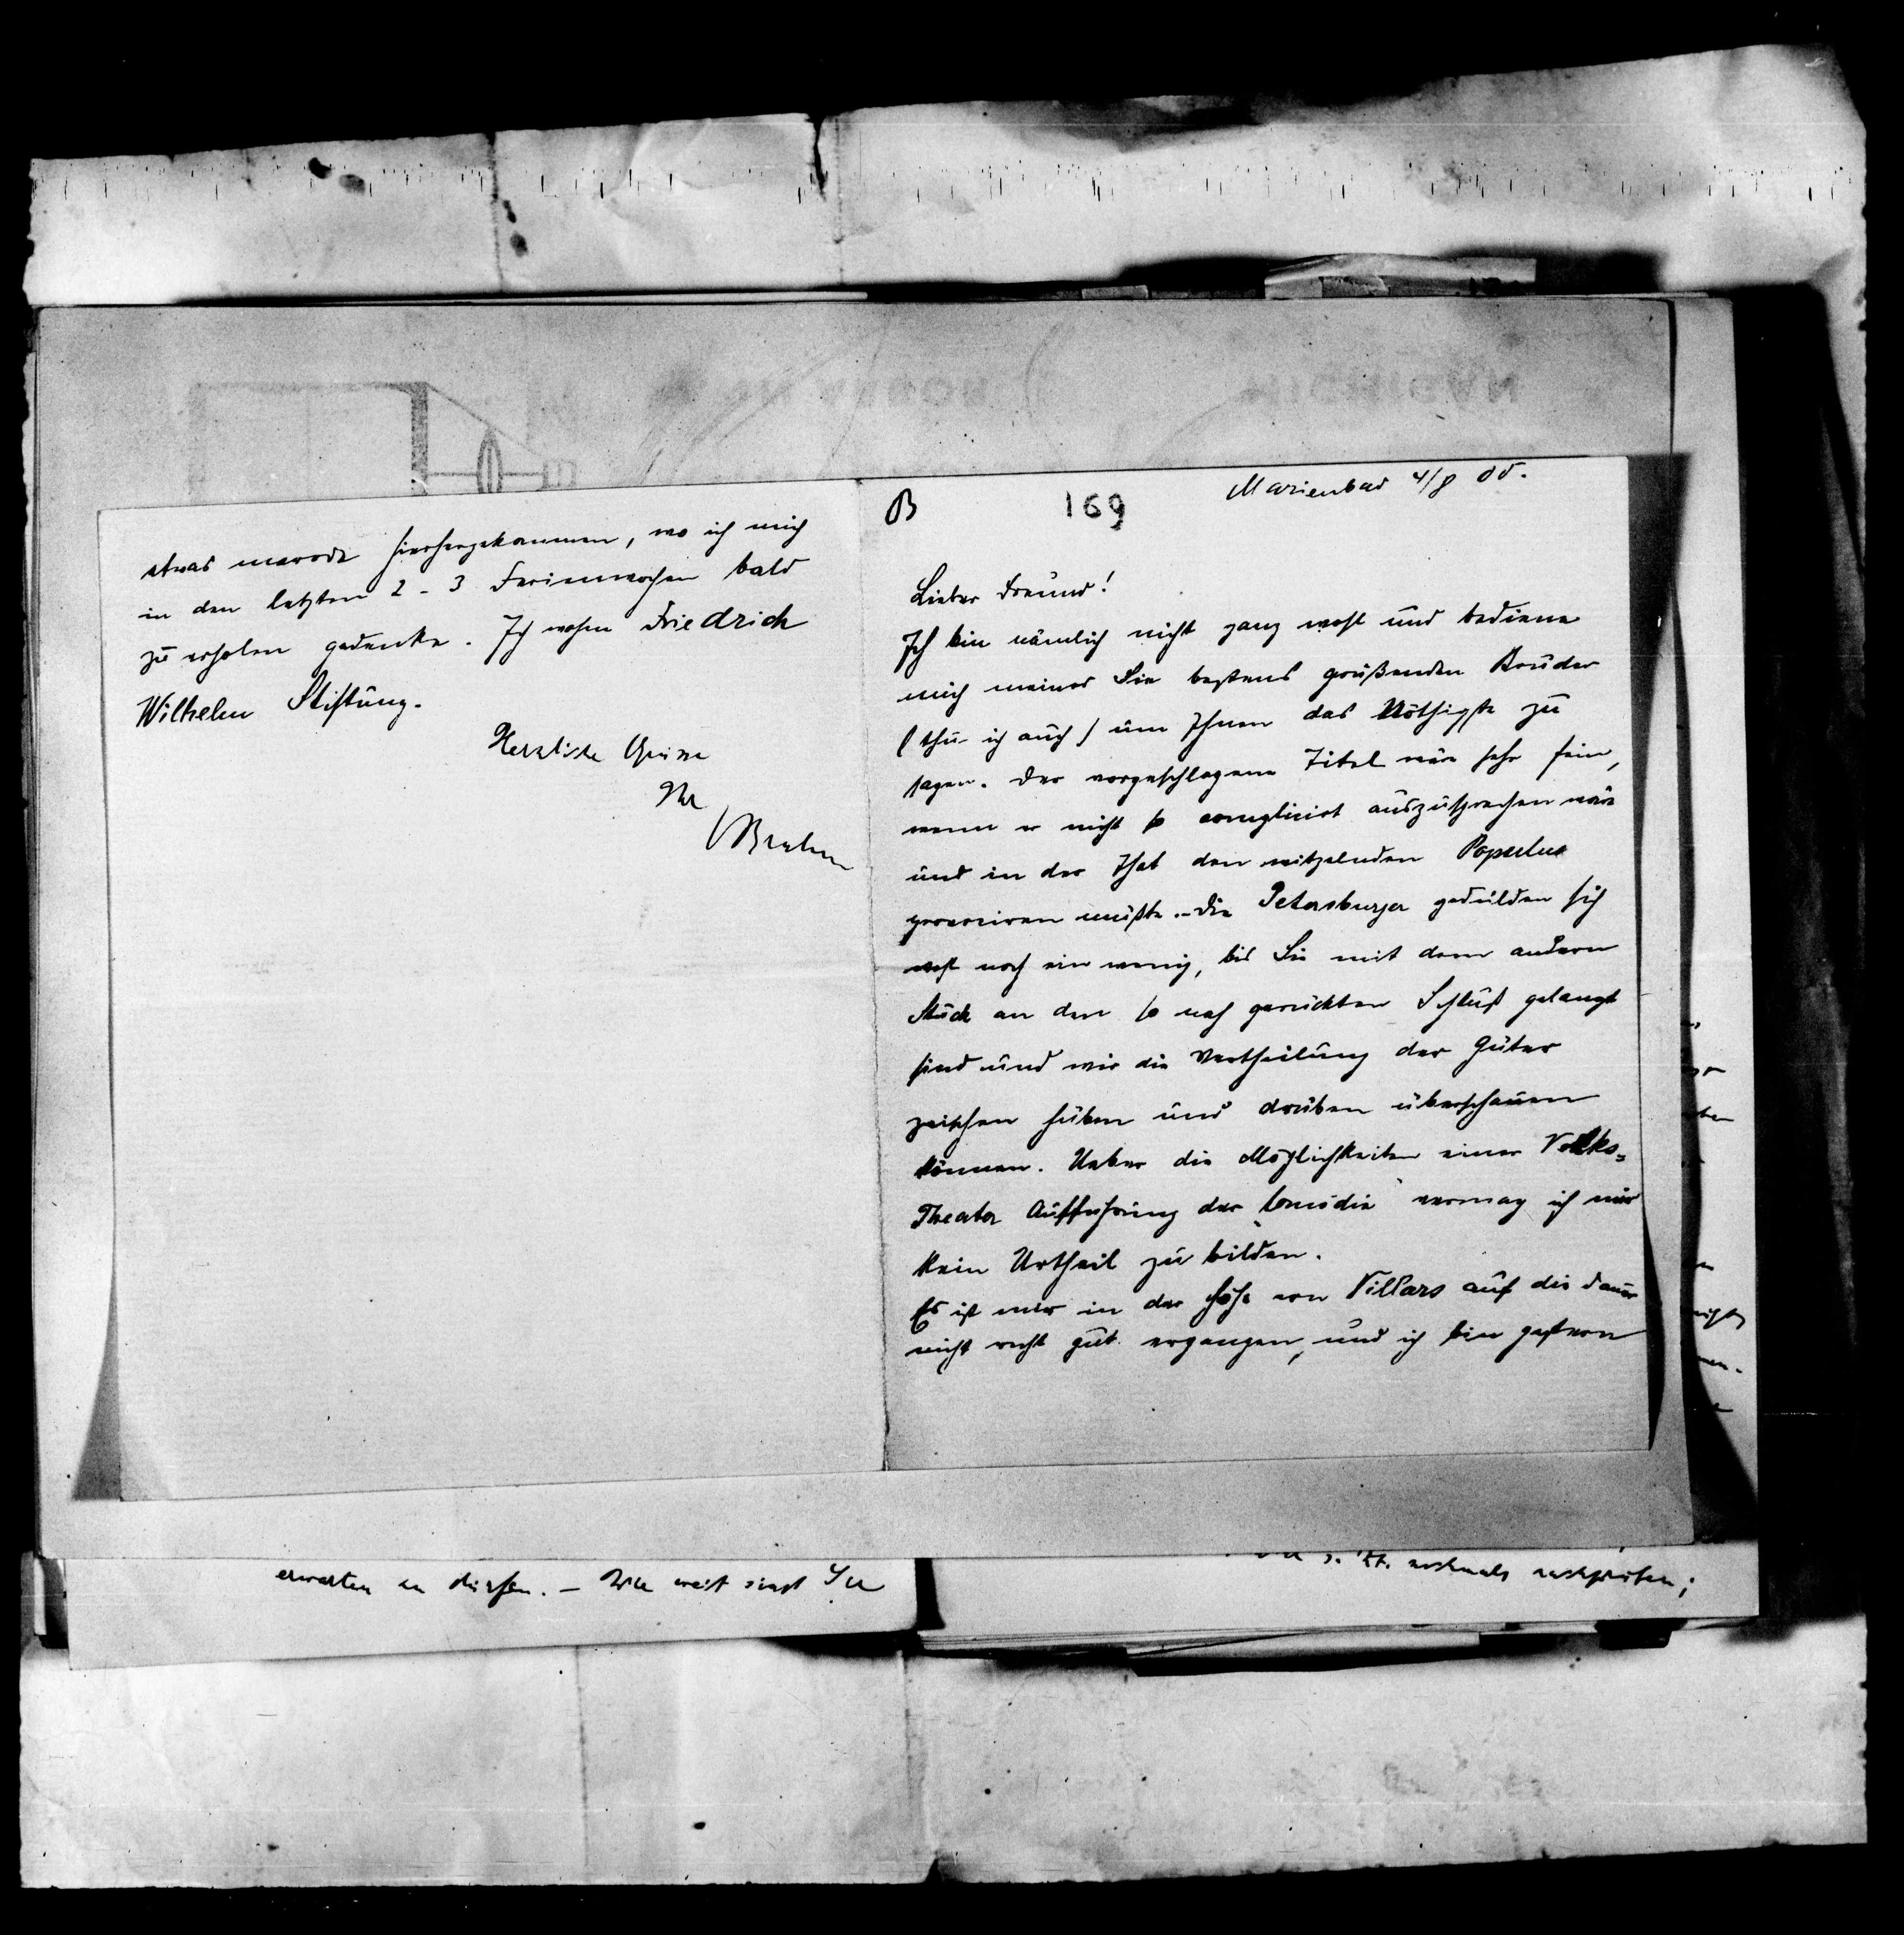 B 169 Marienbad 4/8 05.
Lieber Freund!
Ich bin nämlich nicht ganz wohl und bediene
mich meines Sie bestens grüßenden Bruder
(thu- ich auch) um Ihnen das Nöthigste zu
sagen. Der vorgeschlagene Titel wäre sehr fein,
wenn er nicht so complicirt auszusprechen wäre
und in der That den witzelnden
provociren müßte. – Die Petersburger gedulden sich
wohl noch ein wenig, bis Sie mit dem andern
Stück an den so nah gerückten Schluß gelangt
sind und wir die Vertheilung der Güter
zwischen hüben und drüben überschauen
können. Ueber die Möglichkeiten einer Volks=
Theater Aufführung der Comödie vermag ich mir
kein Urtheil zu bilden.
Es ist mir in der Höhe von Villars auf die Dauer
nicht recht gut ergangen, und ich bin gestern
etwas marode hierhergekommen, wo ich mich
in den letzten 2 - 3 Ferienwochen bald
zu erholen gedenke. Ich wohne Friedrich
Wilhelm Stiftung.
Herzliche Grüsse
Ihr
Brahm
erwarten zu dürfen. – Wie weit sind Sie